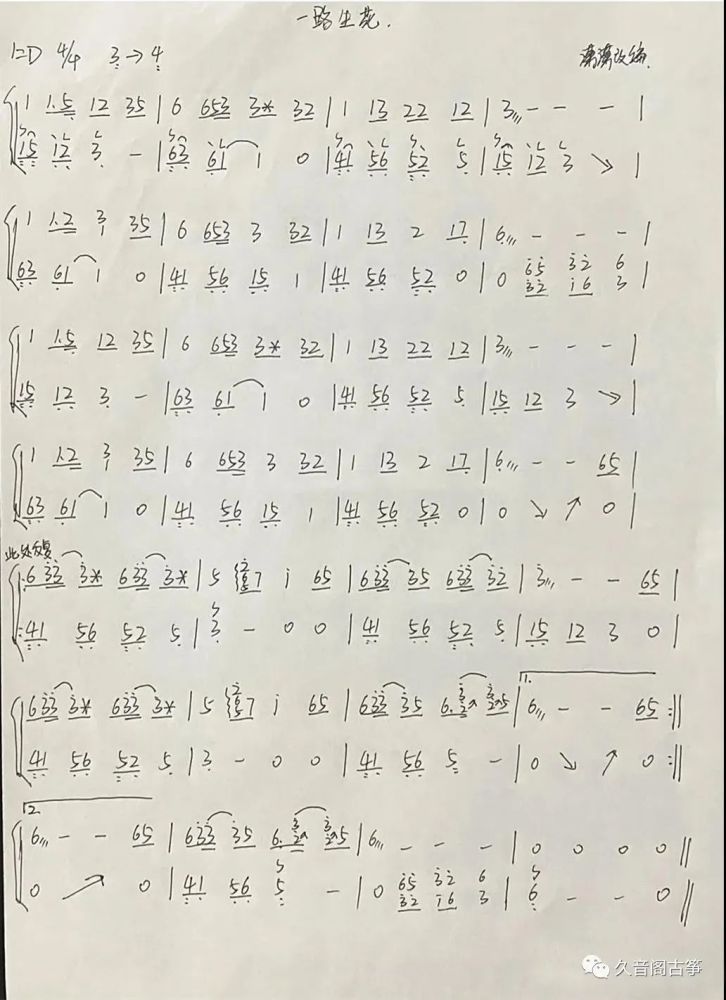 一路生花.
1=D 4/4 3→4
漓漓改编.
1 1.5 12 35 | 6 653 3* 32 | 1 13 22 12 | 3/// - - - |
15 12 3 - | 63 61 1 0 | 41 56 52 5 | 15 12 3 ↘ |
1 1.2 3 35 | 6 653 3 32 | 1 13 2 17 | 6./// - - - |
63 61 1 0 | 41 56 15 1 | 41 56 52 0 | 0 65 32 6 |
32 16 3
1 1.5 12 35 | 6 653 3* 32 | 1 13 22 12 | 3/// - - - |
15 12 3 - | 63 61 1 0 | 41 56 52 5 | 15 12 3 ↘ |
1 1.2 3 35 | 6 653 3 32 | 1 13 2 17 | 6./// - - 65 |
63 61 1 0 | 41 56 15 1 | 41 56 52 0 | 0 ↘ ↗ 0 |
此处反复
6 33 3* 633 3* | 5 7 i 65 | 633 35 633 32 | 3/// - - 65 |
41 56 52 5 | 3 - 0 0 | 41 56 52 5 | 15 12 3 0 |
1.
633 3* 633 3* | 5 7 i 65 | 633 35 6. 2 25 | 6/// - - 65 :||
41 56 52 5 | 3 - 0 0 | 41 56 5 - | 0 ↘ ↗ 0 :||
2.
6/// - - 65 | 633 35 6. 2 25 | 6/// - - - | 0 0 0 0 ||
0 ↗ 0 | 41 56 5 - | 0 65 32 6 | 6 - - 0 ||
32 16 3
久音阁古筝